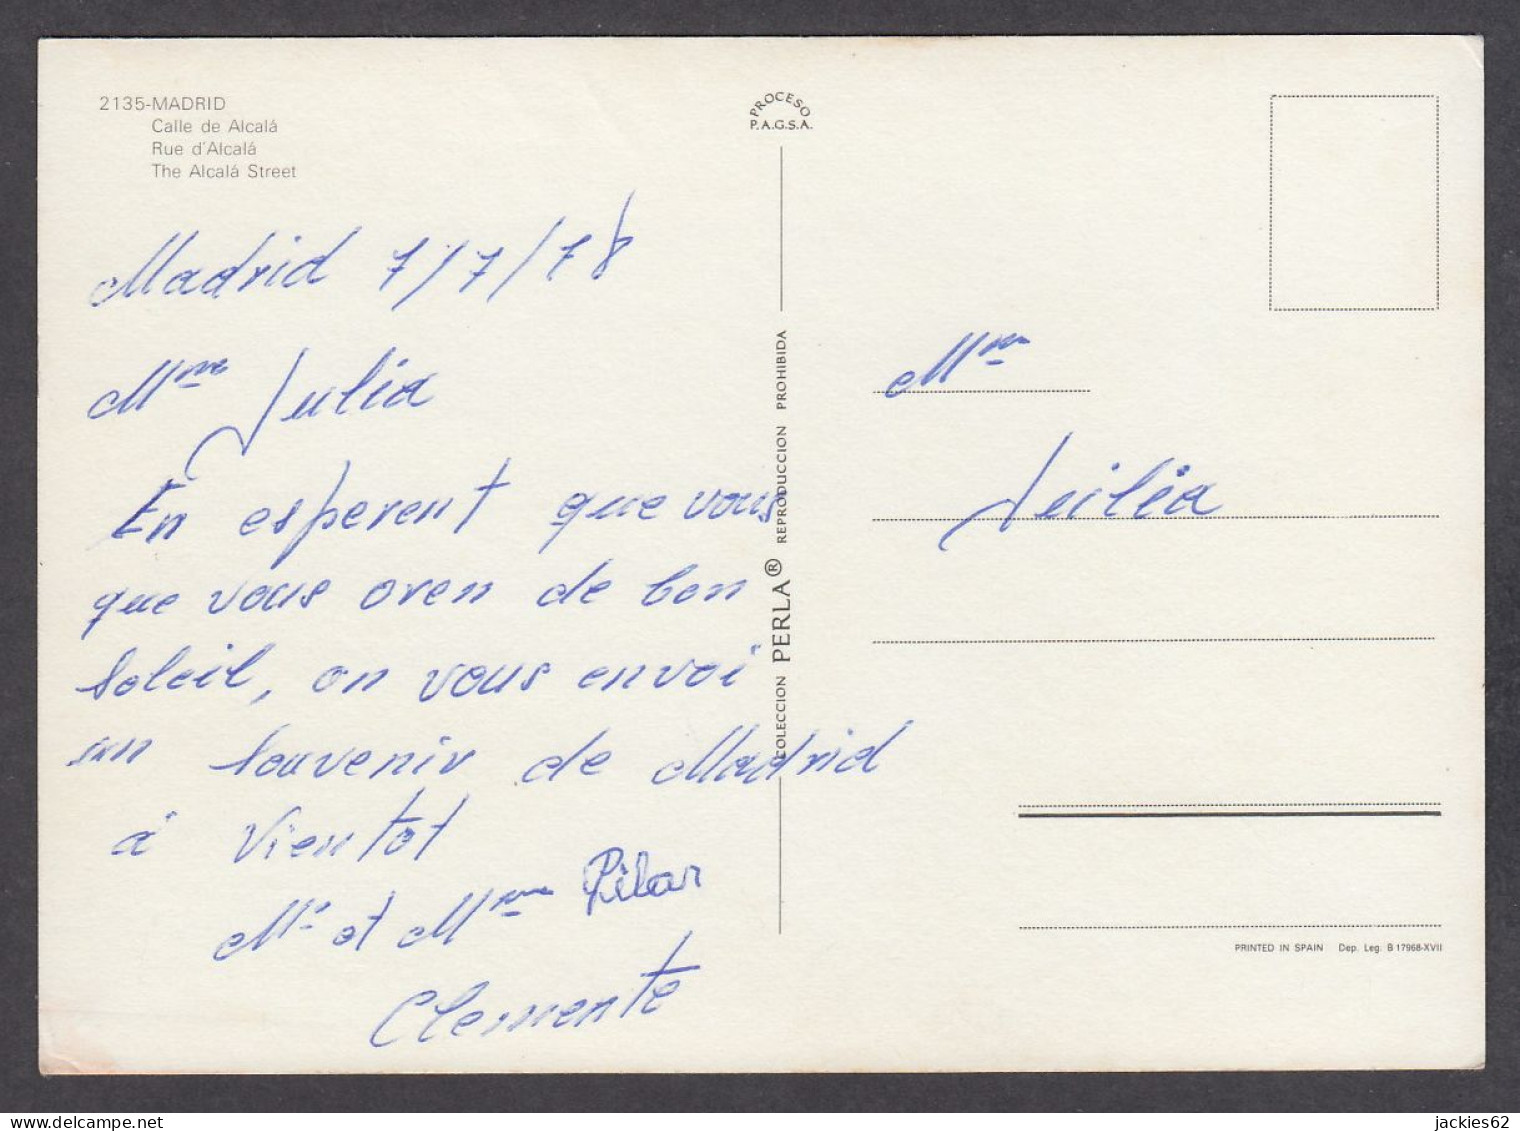 2135-MADRID
Calle de Alcalá
Rue d'Alcalá
The Alcalá Street
Madrid 7/7/78
Mme Julia
En esperent que vous
que vous oren de bon
soleil, on vous envoi
un souvenir de Madrid
á Vientot
Mr et Mme Pilar
Clemente
PROCESO
P.A.G.S.A.
COLECCION PERLA® REPRODUCCION PROHIBIDA
Mme
Julia
PRINTED IN SPAIN Dep. Leg. B 17968-XVII
jackies62